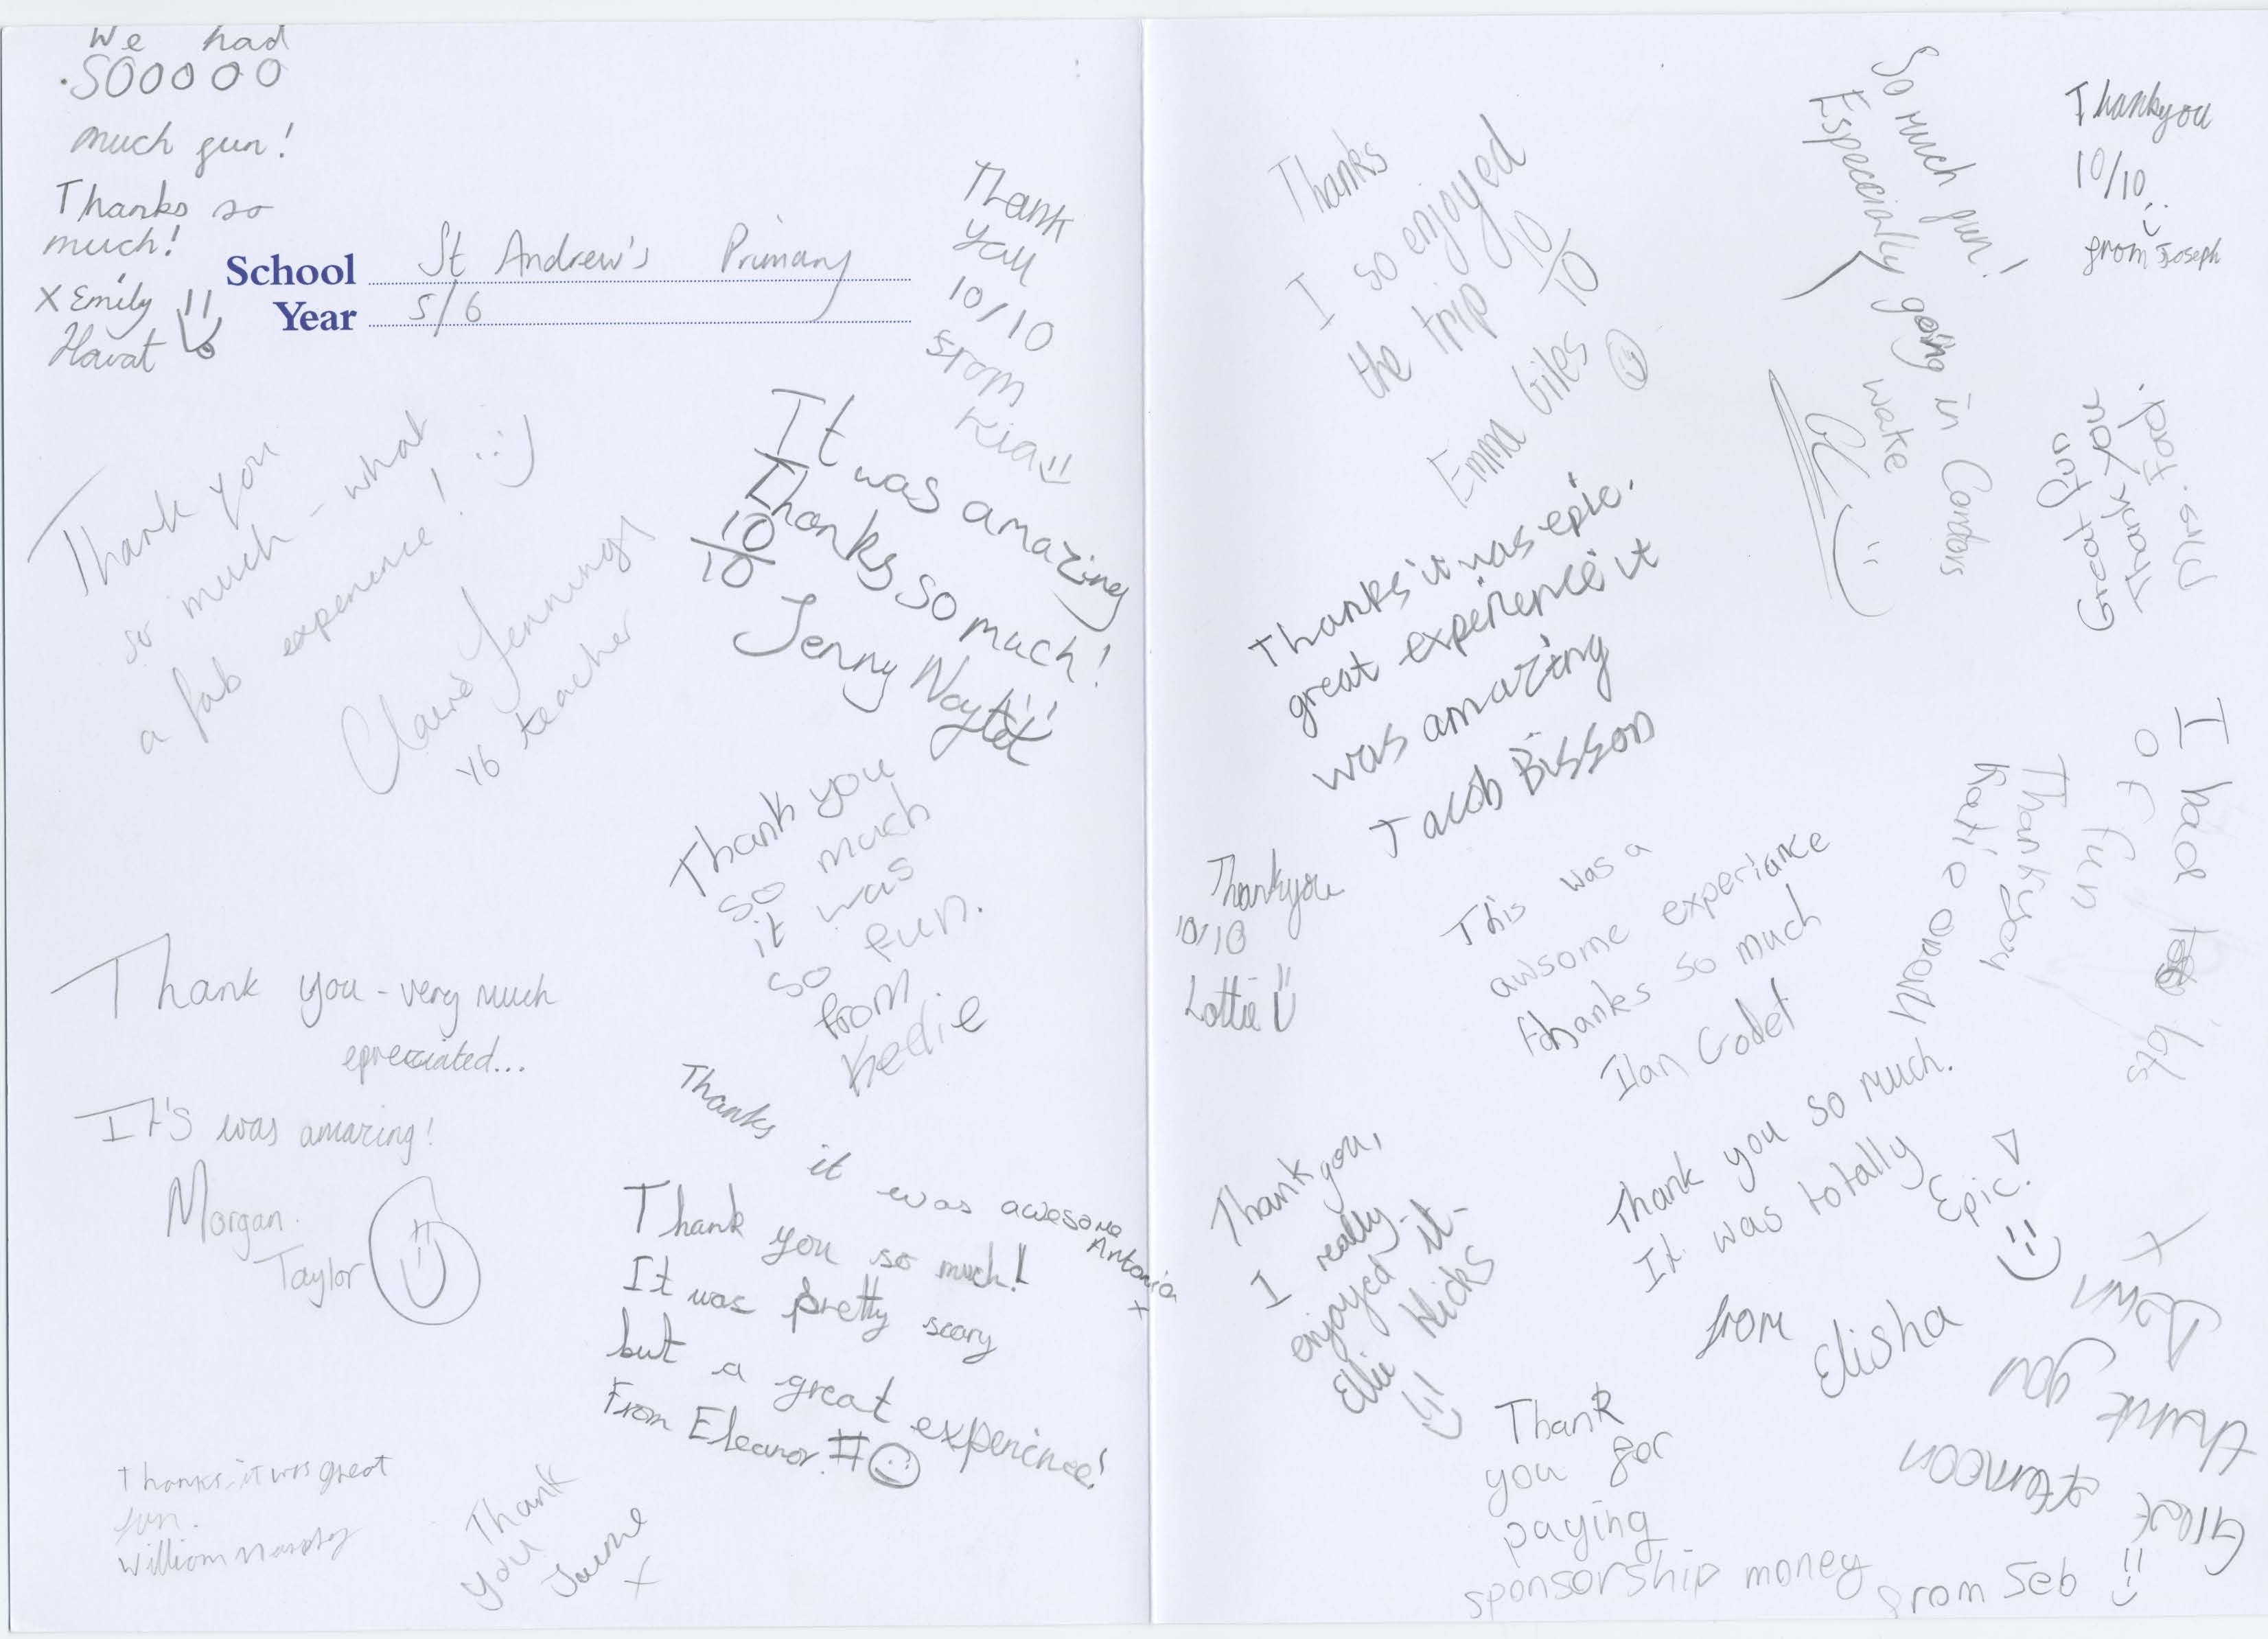 We had
SOOOOO
much fun!
Thanks so
much!
x Emily
School St Andrew's Primary
Year 5/6
Thank
you
10/10
from
Kia
Thank you
so much - what
a fab experience! :)
Claire Jennings
Y6 teacher
It was amazing
Thanks so much!
10/10
Jenny
Thank you
so much
it was
so fun.
from
Keelie
Thank you - very much
epreciated...
It's was amazing!
Morgan
Taylor
Thanks
it was awesome
Antonia
x
Thank you so much!
It was pretty scary
but a great experience!
From Eleanor. #
Thanks it was great
fun.
William
Thank
you
x
Thanks
I so enjoyed
the trip 10/10
Emma Giles
So much fun!
Especcially going in Cardors
wake
Thankyou
10/10
from Joseph
Mrs. Ead.
Thank You
Great fun
Thanks it was epic.
great experience it
was amazing
Jacob Bisson
I had lots
of fun
Thankyou
Katie
Thankyou
10/10
Lottie
This was a
awsome experiance
thanks so much
Ilan Godet
Thank you so much.
It was totally
Epic!
from
Elisha
Thank you,
I really
enjoyed it
Ellie Hicks
Great
thank you
x
Thank
you for
paying
sponsorship money
from Seb